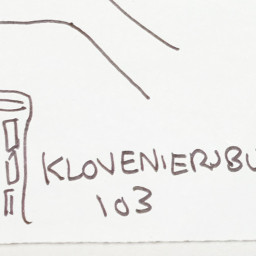 KLOVENIERSBU
103